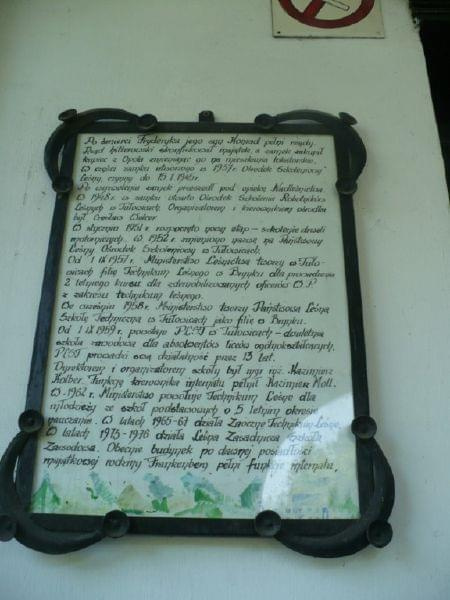 Po śmierci Fryderyka jego syn Konrad pełni rządy.
Rząd hitlerowski skonfiskował majątek, a zamek zakupił
kupiec z Opola zmieniając go na mieszkania lokatorskie.
W części zamku utworzono w 1937r. Ośrodek Szkoleniowy
Leśny, czynny do 15 I 1945r.
Po wyzwoleniu zamek przeszedł pod opiekę Nadleśnictwa
W 1948r. w zamku otwarto Ośrodek Szkolenia Robotników
Leśnych w Tułowicach. Organizatorem i kierownikiem ośrodka
był Czesław
W styczniu 1951r. rozpoczęto nowy etap – szkolenie drwali
motorowych. W 1952r. zmieniono nazwę na Państwowy
Leśny Ośrodek Szkoleniowy w Tułowicach.
Od 1 IX 1957r. Ministerstwo Leśnictwa tworzy w Tuło-
wicach filię Technikum Leśnego w Brynku dla prowadzenia
2 letniego kursu dla zdemobilizowanych oficerów W.P.
z zakresu technikum leśnego.
We wrześniu 1958r. Ministerstwo tworzy Państwową Leśną
Szkołę Techniczną w Tułowicach jako filię w Brynku.
Od 1 IX 1959r. powstaje PLST w Tułowicach – dwuletnia
szkoła zawodowa dla absolwentów liceów ogólnokształcących.
PLST prowadzi swą działalność przez 13 lat.
Dyrektorem i organizatorem szkoły był mgr inż. Kazimierz
Holber. Funkcję kierownika internatu pełnił Kazimierz Moll.
W 1962r. Ministerstwo powołuje Technikum Leśne dla
młodzieży ze szkół podstawowych o 5 letnim okresie
nauczania. W latach 1965-67 działa Zaoczne Technikum Leśne,
W latach 1973-1976 działa Leśna Zasadnicza Szkoła
Zawodowa. Obecnie budynek po dawnej posiadłości
majątkowej rodziny Frankenberg pełni funkcję internatu.